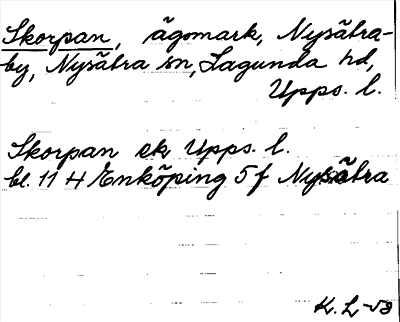 Skorpan, ägomark, Nysätra-
by, Nysätra sn, Lagunda hd,
Upps. l.
Skorpan ek Upps. l.
bl. 11 H Enköping 5 f Nysätra
K. L-58